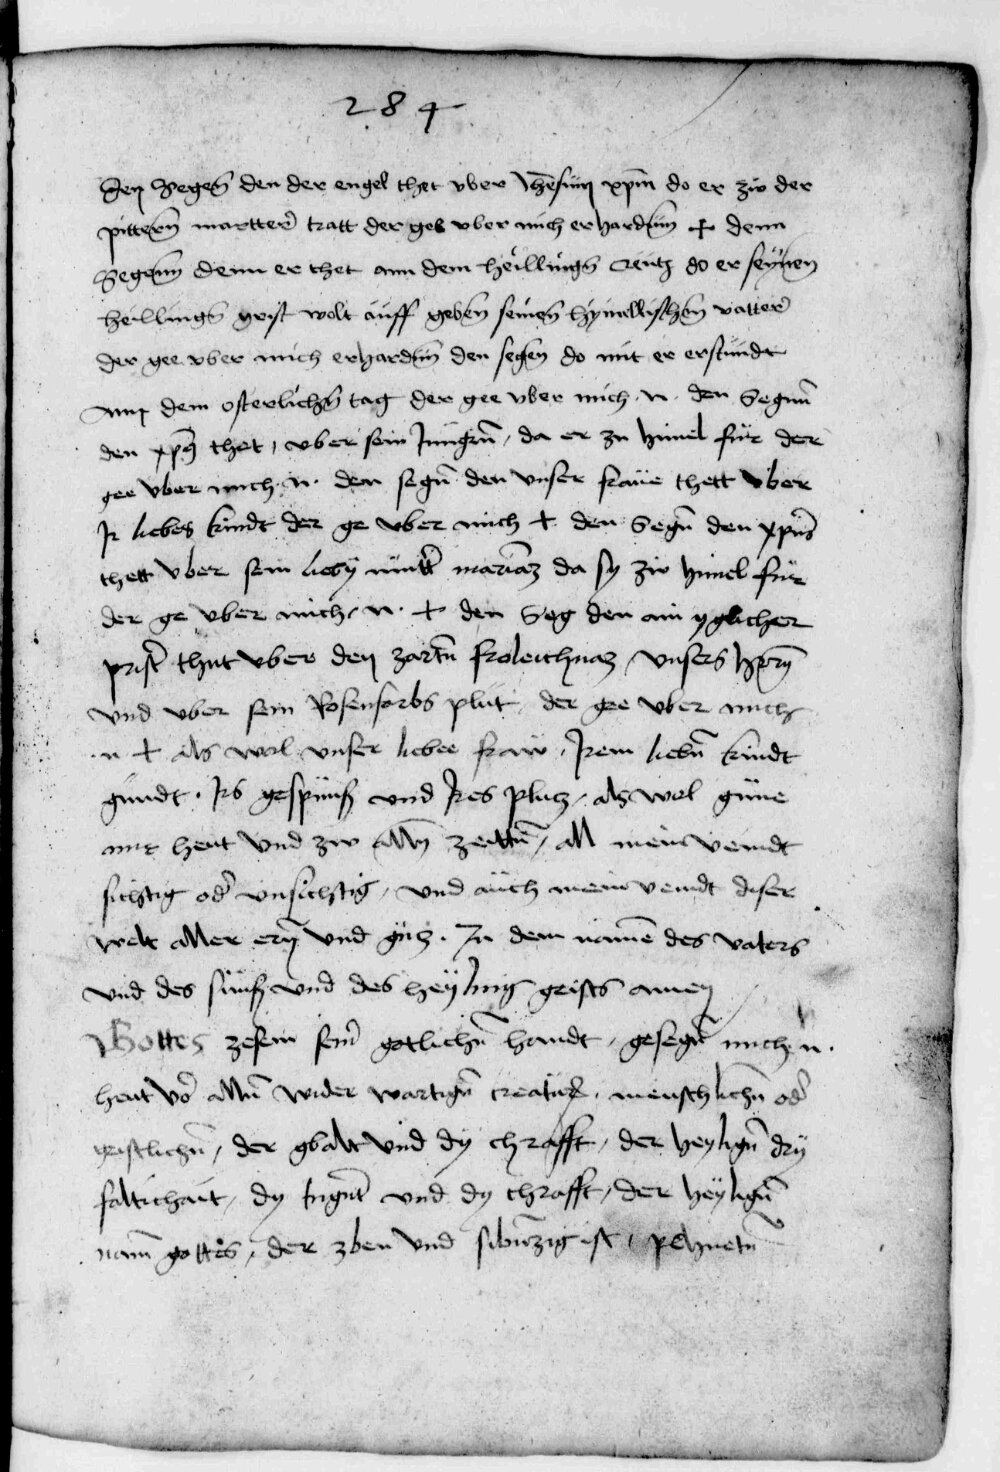 284
den Segen den der engel thet vber Jhesum xpm do er zw der
pittern martter tratt der gee vber mich erhardum + denn
Segenn denn er thet ann dem heilligen creutz do er seynen
heilligen geist wolt auff geben seinem hymellischen vatter
der gee vber mich erhardum den segen do mit er erstundt
ann dem osterlichen tag der gee vber mich · n · den Segenn
den xps thet, vber sein Jungern, da er zu himel fur der
gee vber mich · n · den segen den vnser fraue thett vber
Jr liebes kindt der ge vber mich + den Segn den xpus
thett vber sein lieby mutter mariaz da sy zw himel fur
der ge vber mich · n · + den Seg den ain yglicher
prister thut vber den zarten froleichnaz vnsers hern
vnd vber sein Rosenfarbs plut, der gee vber mich
· n + als wol vnser liebee fraw, Jrem liebn kindt
gundt · Jrs gespunß vnd Jres plutz, als wol gunne
mir heut vnd zw alln zeittn, all mein veindt
sichtig oder vnsichtig, vnd auch mein veindt diser
welt aller ern vnd gutz · In dem namen des vaters
vnd des sunß vnd des heyling geists amen
Gottes zesem seiner gotlichn handt, gesegn mich · n ·
heut vor alln wider wartign creatur, menschlichn oder
geistlichn, der gbalt vnd dy chrafft, der heylign dry
faltichait, dy tugnt vnd dy chrafft, der heylign
nam gottes, der zben vnd sibnzig ist,